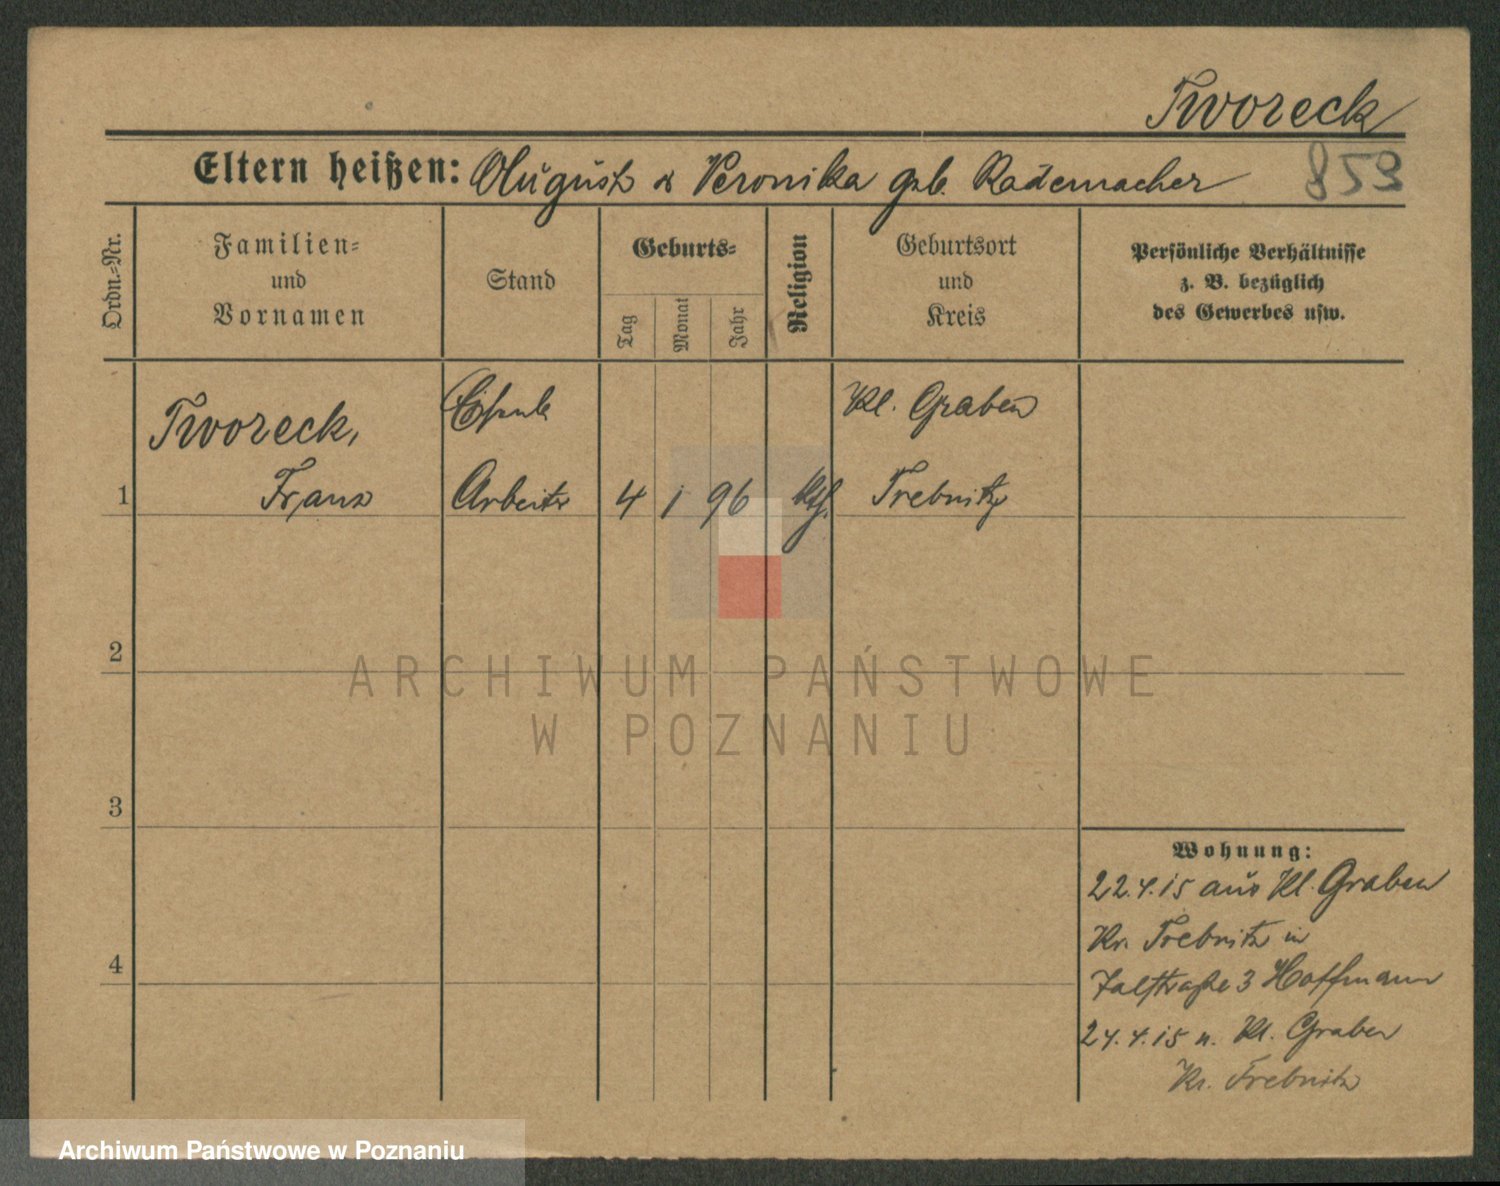 Tworeck
Eltern heißen: August & Veronika geb. Rademacher 853
Ordn.-Nr.
Familien-
und
Vornamen
Stand
Geburts-
Tag
Monat
Jahr
Religion
Geburtsort
und
Kreis
Persönliche Verhältnisse
z. B. bezüglich
des Gewerbes usw.
Tworeck, Kl. Graben
1 Franz Arbeiter 4 1 96 kth. Trebnitz
2
ARCHIWUM PAŃSTWOWE
W POZNANIU
3
Wohnung:
22.4.15 aus Kl. Graben
Kr. Trebnitz in
Talstraße 3 Hoffmann
4
24.4.15 n. Kl. Graben
Kr. Trebnitz
Archiwum Państwowe w Poznaniu